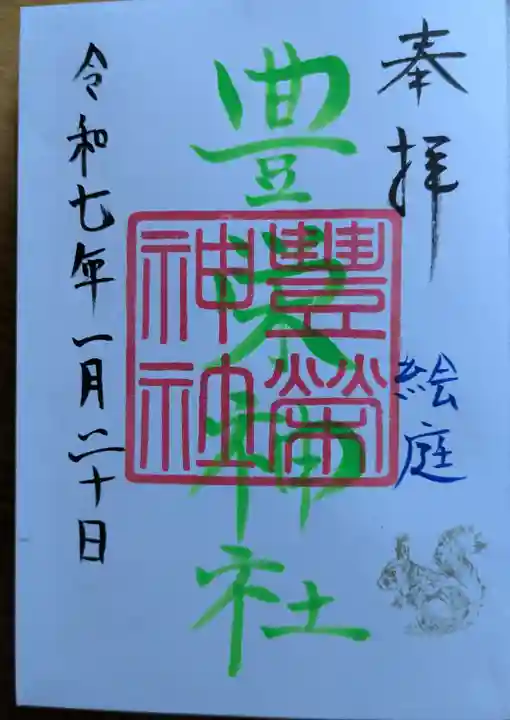 奉拝
絵庭
豊栄神社
豊榮
神社
令和七年一月二十日